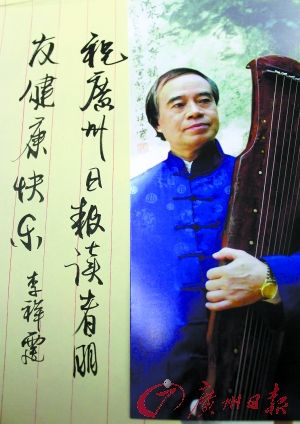 祝廣州日報读者朋
友健康快乐
李祥霆
廣州日报